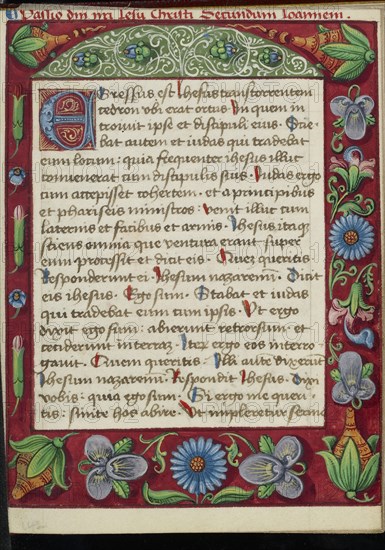 Passio dni nri Iesu Christi Secundum Ioannem.
Egressus est Ihesus trans torrentem
cedron vbi erat ortus In quem in
trouit ipse et discipuli eius Scie
bat autem et iudas qui tradebat
eum locum: quia frequenter ihesus illuc
conuenerat cum discipulis suis Iudas ergo
cum accepisset cohortem et a principibus
et phariseis ministros: venit illuc cum
laternis et facibus et armis Ihesus itaq
sciens omnia que ventura erant super
eum processit et dicit eis Quez queritis
Responderunt ei Ihesum nazarenum Dicit
eis ihesus Ego sum Stabat et iudas
qui tradebat eum cum ipsis Ut ergo
dixit ego sum: abierunt retrorsum et
ceciderunt in terraz Iteruz ergo eos interro
gauit Quem queritis Illi aute dixerunt
Ihesum nazarenum Respondit Ihesus. Dixi
vobis quia ego sum Si ergo me queri
tis: sinite hos abire. Ut impleretur sermo